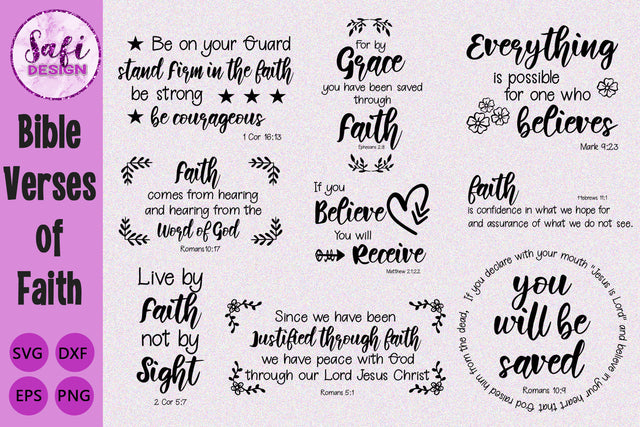 Safi
DESIGN
Bible
Verses
of
Faith
SVG
DXF
EPS
PNG
Be on your Guard
stand firm in the faith
be strong
be courageous
1 Cor 16:13
For by
Grace
you have been saved
through
Faith
Ephesians 2:8
Everything
is possible
for one who
believes
Mark 9:23
Faith
comes from hearing
and hearing from the
Word of God
Romans 10:17
If you
Believe
You will
Receive
Matthew 21:22
faith
Hebrews 11:1
is confidence in what we hope for
and assurance of what we do not see.
Live by
Faith
not by
Sight
2 Cor 5:7
Since we have been
Justified through faith
we have peace with God
through our Lord Jesus Christ
Romans 5:1
If you declare with your mouth "Jesus is Lord" and believe in your heart that God raised him from the dead,
you
will be
saved
Romans 10:9